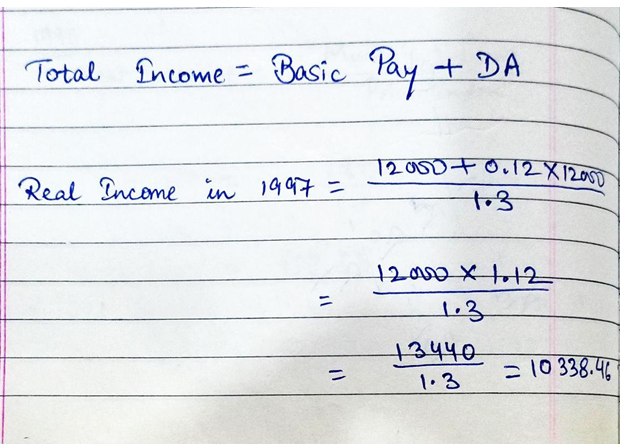 Total Income = Basic Pay + DA
Real Income in 1997 = 12000 + 0.12 X 12000
1.3
= 12000 X 1.12
1.3
= 13440
1.3
= 10338.46